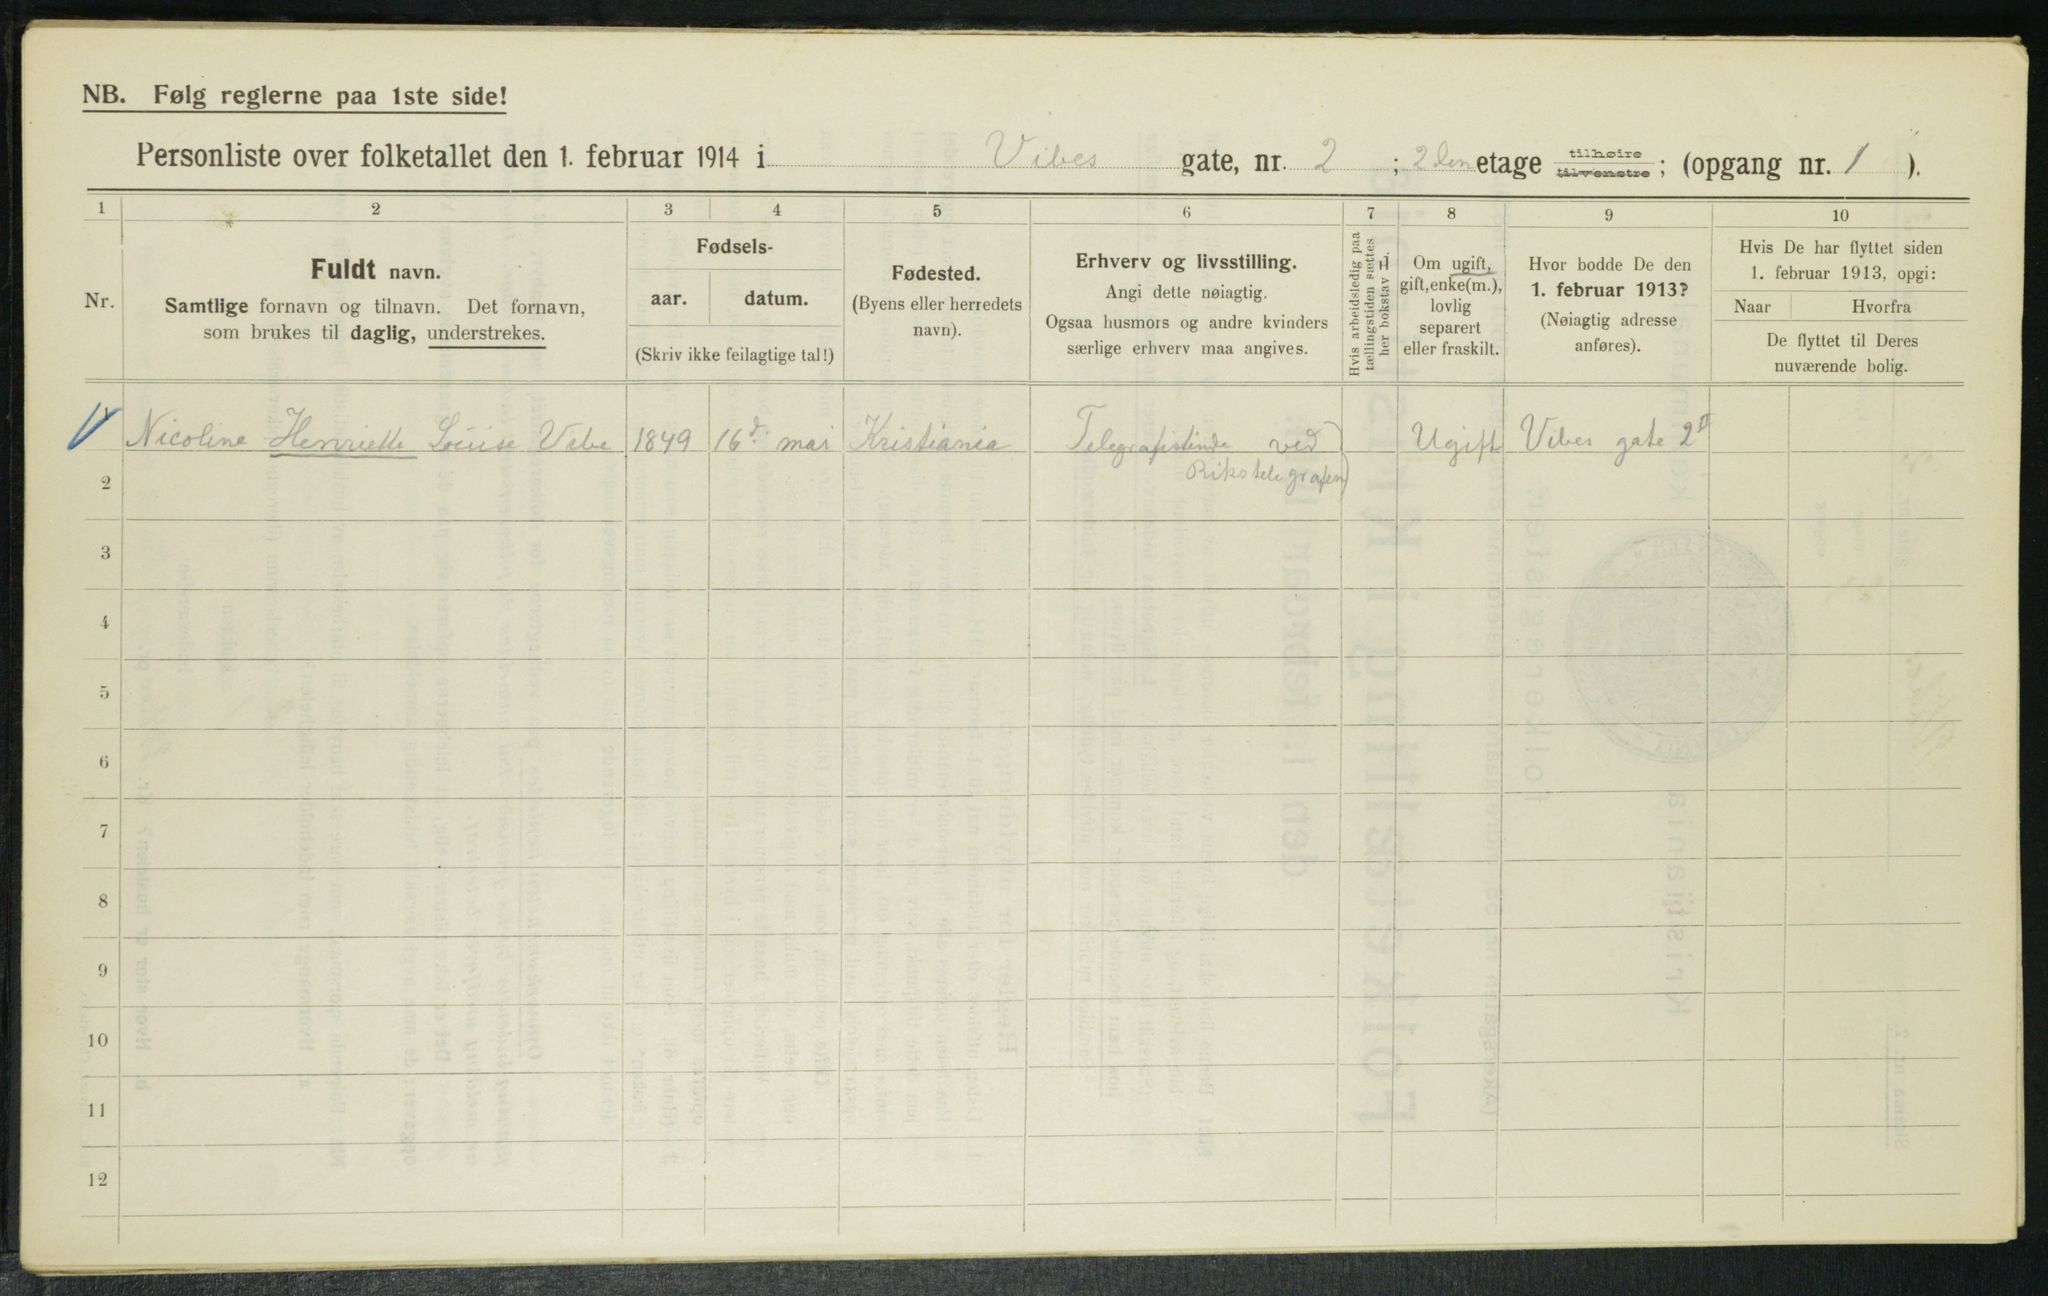 NB. Følg reglerne paa 1ste side!
Personliste over folketallet den 1. februar 1914 i Vibes gate, nr. 2 ; 2den etage tilhøire tilvenstre ; (opgang nr. 1 ).
1 2 3 4 5 6 7 8 9 10
Nr.
Fuldt navn.
Samtlige fornavn og tilnavn. Det fornavn,
som brukes til daglig, understrekes.
Fødsels-
aar. datum.
(Skriv ikke feilagtige tal!)
Fødested.
(Byens eller herredets
navn).
Erhverv og livsstilling.
Angi dette nøiagtig.
Ogsaa husmors og andre kvinders
særlige erhverv maa angives.
Hvis arbeidsledig paa
tællingstiden sættes
her bokstav L.
Om ugift,
gift, enke(m.),
lovlig
separert
eller fraskilt.
Hvor bodde De den
1. februar 1913?
(Nøiagtig adresse
anføres).
Hvis De har flyttet siden
1. februar 1913, opgi:
Naar Hvorfra
De flyttet til Deres
nuværende bolig.
Nicoline Henriette Louise Vibe 1849 16d. mai Kristiania Telegrafistinde ved Ugift Vibes gate 2II
Rikstelegrafen
2
3
4
5
6
7
8
9
10
11
12